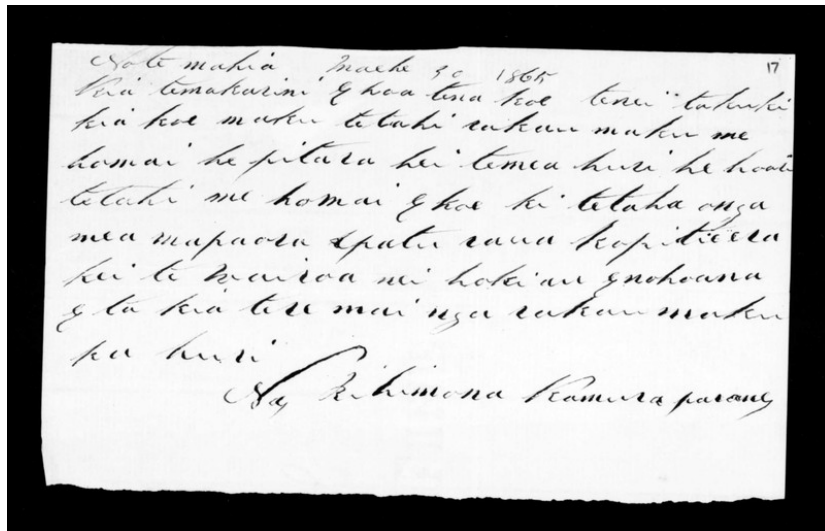 Note mahia Maehe 30 1865
17
Kia temakarini Ehoa tena koe tenei takuki
kia koe maku tetahi rakau maku me
homai he pitara hei temea huri he hoari
tetahi me homai Ekoe ki tetaha onga
mea mapaora Epatu rana kopitiera
kei te Wairoa nei hoki au Enohoana
E ta kia tere mai nga rakau maku
pa huri
Na Kihimona Kamura